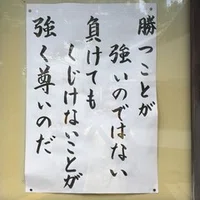 勝つことが
強いのではない
負けても
くじけないことが
強く尊いのだ